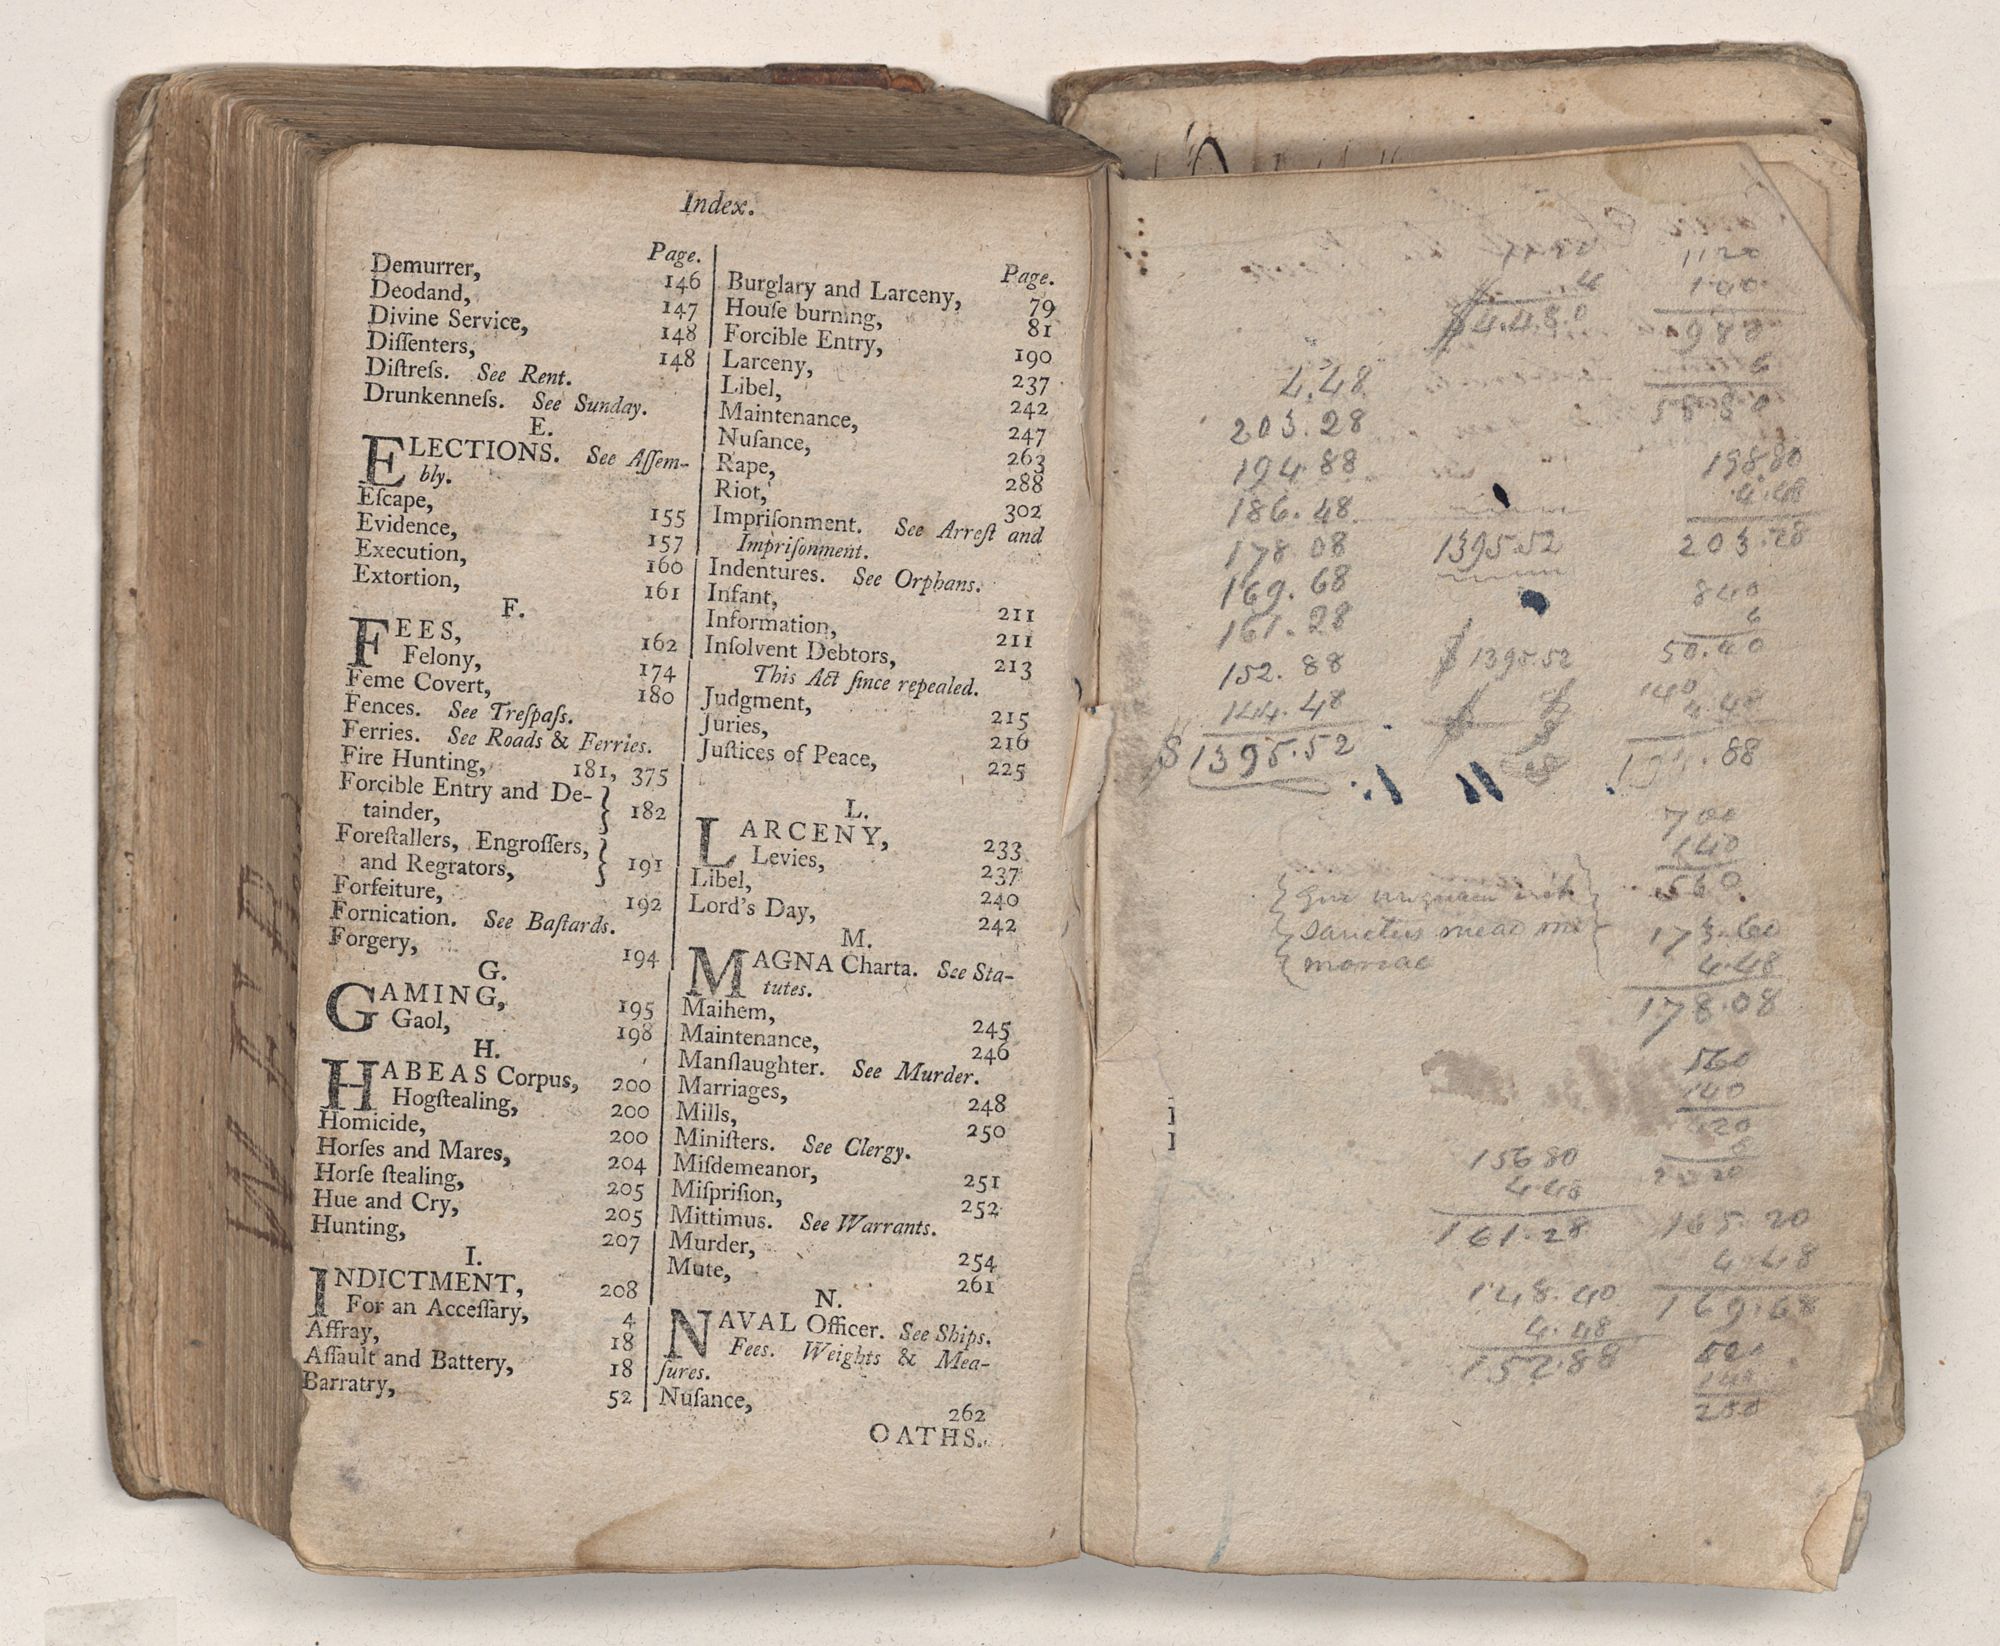 Index.
Page.
Demurrer, 146
Deodand, 147
Divine Service, 148
Diſſenters, 148
Diſtreſs. See Rent.
Drunkenneſs. See Sunday.
E.
ELECTIONS. See Aſſem-
bly.
Eſcape, 155
Evidence, 157
Execution, 160
Extortion, 161
F.
FEES, 162
Felony, 174
Feme Covert, 180
Fences. See Treſpaſs.
Ferries. See Roads & Ferries.
Fire Hunting, 181, 375
Forcible Entry and De-
tainder, 182
Foreſtallers, Engroſſers,
and Regrators, 191
Forfeiture, 192
Fornication. See Baſtards.
Forgery, 194
G.
GAMING, 195
Gaol, 198
H.
HABEAS Corpus, 200
Hogſtealing, 200
Homicide, 200
Horſes and Mares, 204
Horſe ſtealing, 205
Hue and Cry, 205
Hunting, 207
I.
INDICTMENT, 208
For an Acceſſary, 4
Affray, 18
Aſſault and Battery, 18
Barratry, 52
Page.
Burglary and Larceny, 79
Houſe burning, 81
Forcible Entry, 190
Larceny, 237
Libel, 242
Maintenance, 247
Nuſance, 263
Rape, 288
Riot, 302
Impriſonment. See Arreſt and
Impriſonment.
Indentures. See Orphans.
Infant, 211
Information, 211
Inſolvent Debtors, 213
This Act ſince repealed.
Judgment, 215
Juries, 216
Juſtices of Peace, 225
L.
LARCENY, 233
Levies, 237
Libel, 240
Lord's Day, 242
M.
MAGNA Charta. See Sta-
tutes.
Maihem, 245
Maintenance, 246
Manſlaughter. See Murder.
Marriages, 248
Mills, 250
Miniſters. See Clergy.
Miſdemeanor, 251
Miſpriſion, 252
Mittimus. See Warrants.
Murder, 254
Mute, 261
N.
NAVAL Officer. See Ships.
Fees. Weights & Mea-
ſures.
Nuſance, 262
OATHS.
4.48
203.28
194.88
186.48
178.08
169.68
161.28
152.88
144.48
$1395.52
$4.48.0
1395.52
$1395.52
sanctus meae me
moriae
15680
4.48
161.28
148.40
4.48
152.88
1120
140
980
6
5880
19880
4.48
203.28
840
6
50.40
4.48
88
700
140
560
173.60
4.48
178.08
560
140
420
165.20
4.48
169.68
140
280